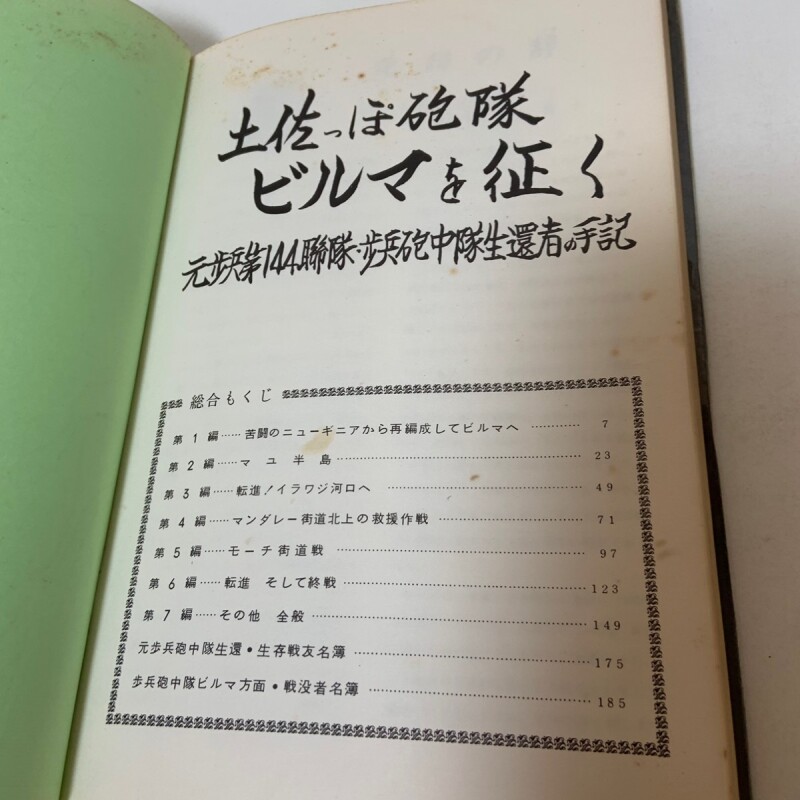 土佐っぽ砲隊
ビルマを征く
元歩兵第144聯隊・歩兵砲中隊生還者の手記
総合もくじ
第1編……苦闘のニューギニアから再編成してビルマへ…………7
第2編……マユ半島…………23
第3編……転進!イラワジ河口へ…………49
第4編……マンダレー街道北上の救援作戦…………71
第5編……モーチ街道戦…………97
第6編……転進 そして終戦…………123
第7編……その他 全般…………149
元歩兵砲中隊生還・生存戦友名簿…………175
歩兵砲中隊ビルマ方面・戦没者名簿…………185